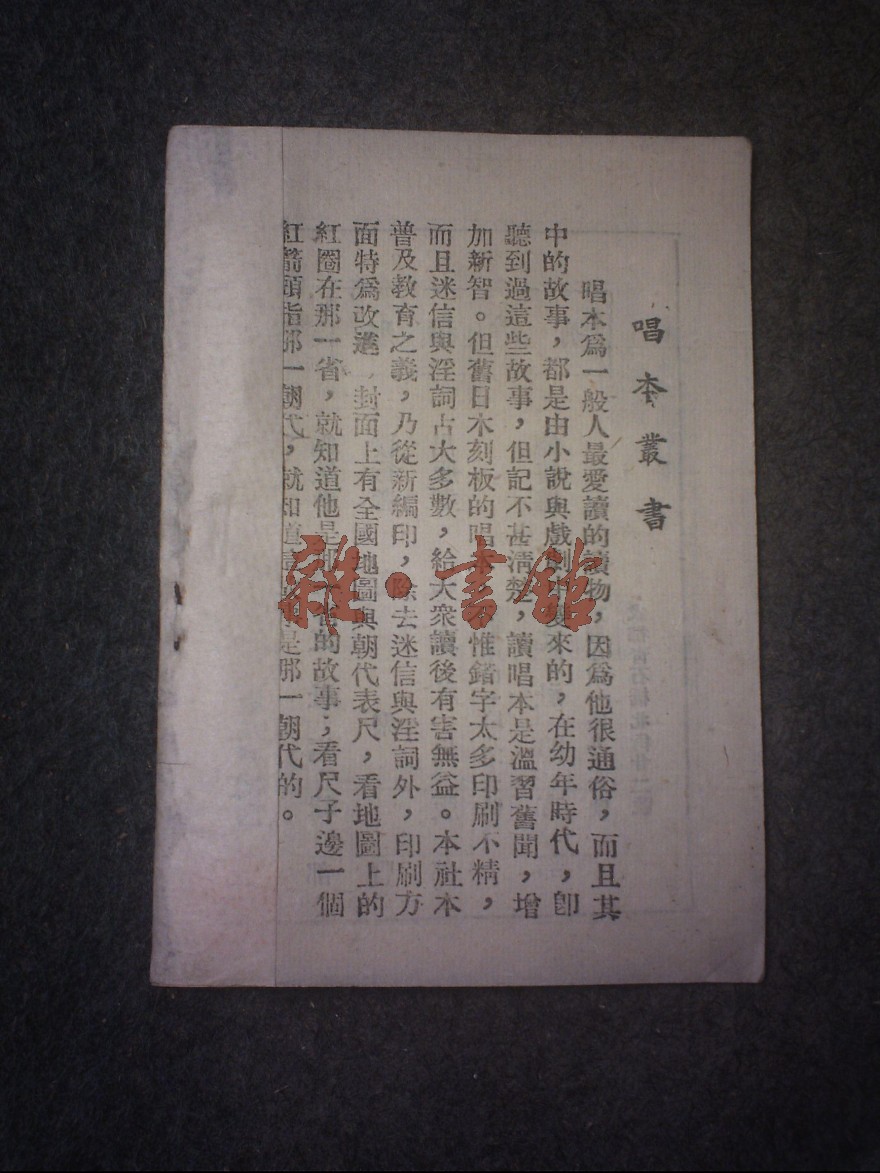 唱本叢書
唱本爲一般人最愛讀的讀物，因爲他很通俗，而且其
中的故事，都是由小說與戲劇 來的，在幼年時代，卽
聽到過這些故事，但記不甚清楚，讀唱本是溫習舊聞，增
加新智。但舊日木刻板的唱本 惟錯字太多印刷不精，
而且迷信與淫詞占大多數，給大衆讀後有害無益。本社本
普及教育之義，乃從新編印，除去迷信與淫詞外，印刷方
面特爲改進 封面上有全國地圖與朝代表尺，看地圖上的
紅圈在那一省，就知道他是那一省的故事；看尺子邊一個
紅箭頭指那一朝代，就知道 是那一朝代的。
雜·書館